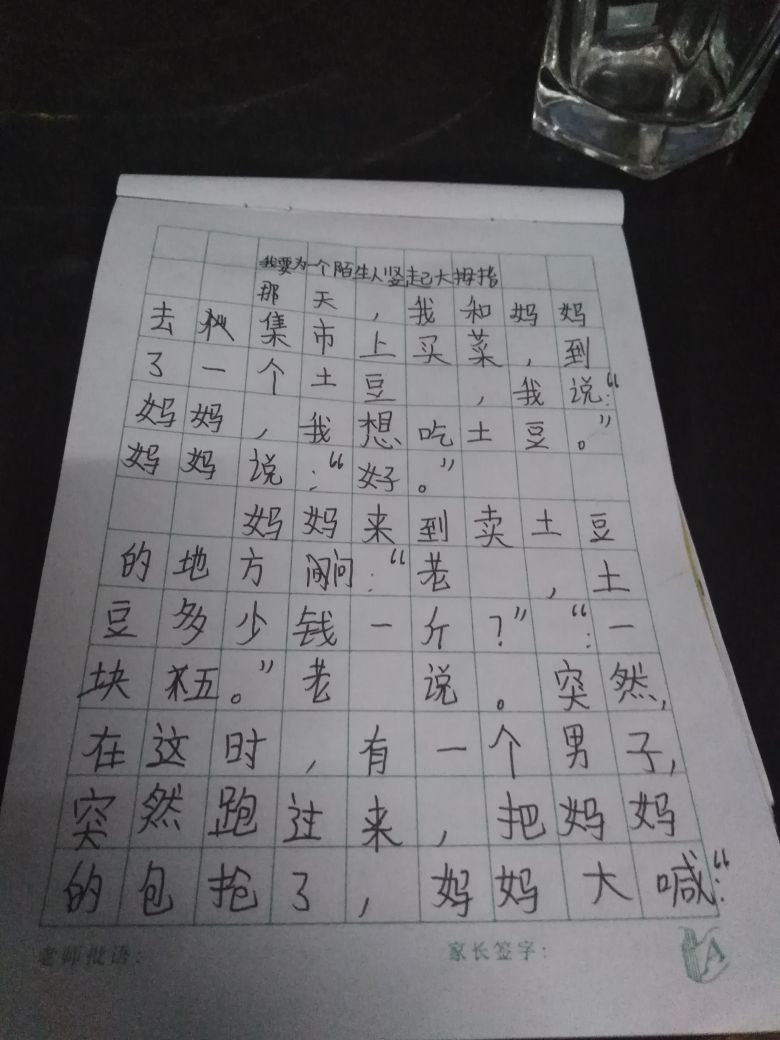 我要为一个陌生人竖起大拇指
那天，我和妈妈
去集市上买菜，到
了一个土豆，我说：“
妈妈，我想吃土豆。”
妈妈说：“好。”
妈妈来到卖土豆
的地方问：“老，土
豆多少钱一斤？”“：一
块五。”老说。突然，
在这时，有一个男子，
突然跑过来，把妈妈
的包抢了，妈妈大喊：“
老师批语：
家长签字：
A